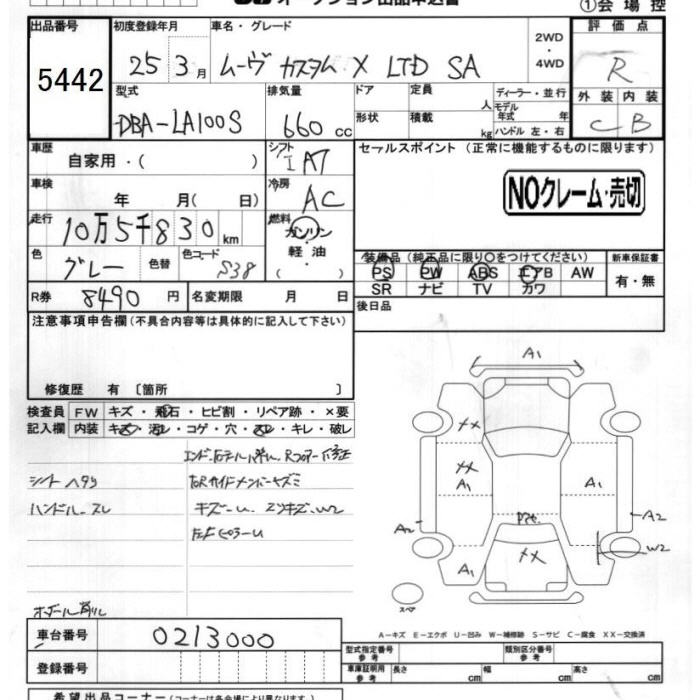 オークション出品申込書
①会場控
出品番号
5442
初度登録年月
25 3月
車名・グレード
ムーヴ カスタム X LTD SA
2WD
・
4WD
評価点
R
外装 内装
C B
型式
DBA-LA100S
排気量
660 cc
ドア
形状
定員
人
積載
kg
ディーラー・並行
モデル年式 年
ハンドル 左・右
車歴
自家用・( )
シフト
I A7
セールスポイント (正常に機能するものに限ります)
NOクレーム・売切
車検
年 月( 日)
冷房
AC
走行
10万5千830km
燃料
ガソリン
軽油
( )
色
グレー
色替
色コード
S38
装備品 (純正品に限り○をつけてください)
PS PW ABS エアB AW
SR ナビ TV カワ
新車保証書
有・無
R券
8490円
名変期限 月 日
後日品
注意事項申告欄(不具合内容等は具体的に記入して下さい)
修復歴 有〔箇所 〕
検査員記入欄
FW キズ・飛石・ヒビ割・リペア跡・×要
内装 キズ・汚レ・コゲ・穴・スレ・キレ・破レ
シートヘタリ
ハンドルースレ
キズーU、エクキズ、W2
A1
XX
XX
A1
A1
A2
A2
W2
XX
A1
スペア
A-キズ E-エクボ U-凹み W-補修跡 S-サビ C-腐食 XX-交換済
車台番号
0213000
登録番号
型式指定番号
参考
類別区分番号
参考
車庫証明用
参考
長さ cm 幅 cm 高さ cm
希望出品コーナー(コーナーは各会場により異なります)